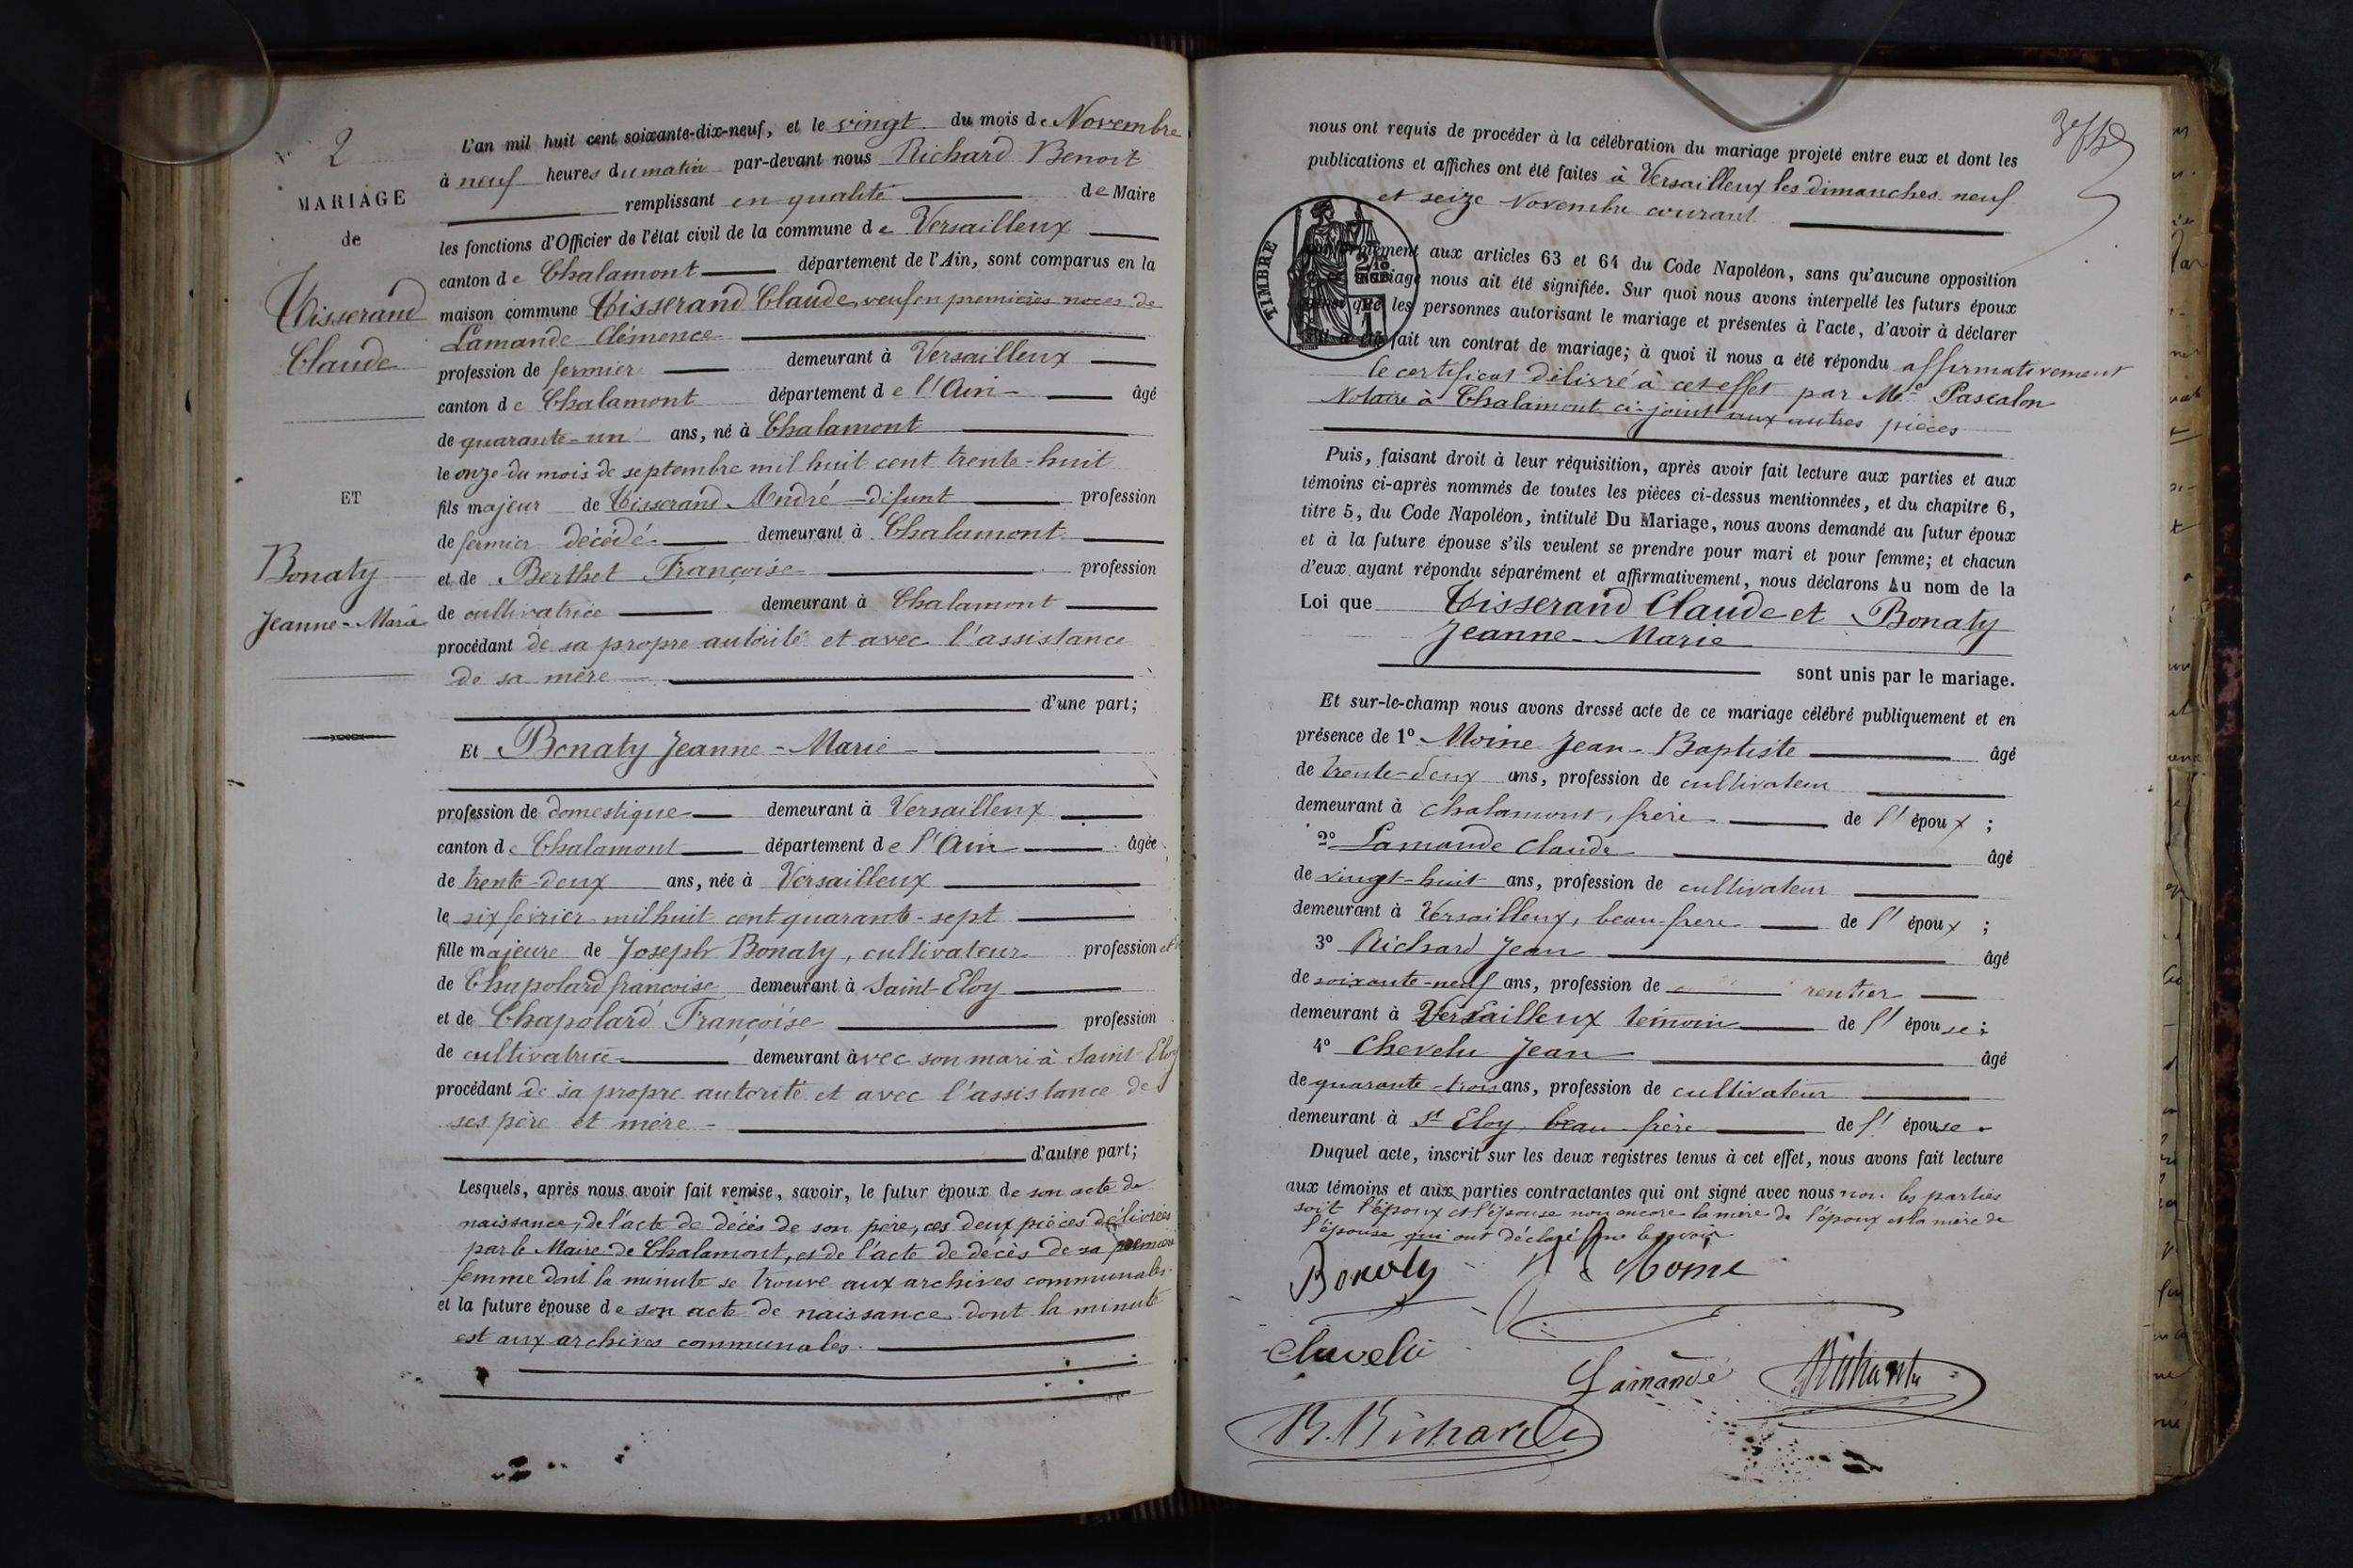 N° 2
MARIAGE
de
Tisserand
Claude
ET
Bonaty
Jeanne-Marie
L'an mil huit cent soixante-dix-neuf, et le vingt du mois de Novembre
à neuf heures du matin par-devant nous Richard Benoit
remplissant en qualité de Maire
les fonctions d'Officier de l'état civil de la commune de Versailleux
canton de Chalamont département de l'Ain, sont comparus en la
maison commune Tisserand Claude, veuf en premières noces de
Lamande Clémence
profession de fermier demeurant à Versailleux
canton de Chalamont département de l'Ain âgé
de quarante-un ans, né à Chalamont
le onze du mois de septembre mil huit cent trente-huit
fils majeur de Tisserand André difunt profession
de fermier décédé demeurant à Chalamont
et de Berthet Françoise profession
de cultivatrice demeurant à Chalamont
procédant de sa propre autorité et avec l'assistance
de sa mère
d'une part;
Et Bonaty Jeanne-Marie
profession de domestique demeurant à Versailleux
canton de Chalamont département de l'Ain âgée
de trente-deux ans, née à Versailleux
le six février mil huit cent quarante-sept
fille majeure de Joseph Bonaty, cultivateur profession et
de Chapolard françoise demeurant à Saint-Eloy
et de Chapolard Françoise profession
de cultivatrice demeurant avec son mari à Saint Eloy
procédant de sa propre autorité et avec l'assistance de
ses père et mère
d'autre part;
Lesquels, après nous avoir fait remise, savoir, le futur époux de son acte de
naissance, de l'acte de décès de son père, ces deux pièces délivrées
par le Maire de Chalamont, et de l'acte de décès de sa première
femme dont la minute se trouve aux archives communales
et la future épouse de son acte de naissance dont la minute
est aux archives communales
nous ont requis de procéder à la célébration du mariage projeté entre eux et dont les
publications et affiches ont été faites à Versailleux les dimanches neuf
et seize Novembre courant
TIMBRE
aux articles 63 et 64 du Code Napoléon, sans qu'aucune opposition
mariage nous ait été signifiée. Sur quoi nous avons interpellé les futurs époux
que les personnes autorisant le mariage et présentes à l'acte, d'avoir à déclarer
fait un contrat de mariage; à quoi il nous a été répondu affirmativement
le certificat délivré à cet effet par Me Pascalon
Notaire à Chalamont ci-joint aux autres pièces
Puis, faisant droit à leur réquisition, après avoir fait lecture aux parties et aux
témoins ci-après nommés de toutes les pièces ci-dessus mentionnées, et du chapitre 6,
titre 5, du Code Napoléon, intitulé Du Mariage, nous avons demandé au futur époux
et à la future épouse s'ils veulent se prendre pour mari et pour femme; et chacun
d'eux ayant répondu séparément et affirmativement, nous déclarons Au nom de la
Loi que Tisserand Claude et Bonaty
Jeanne-Marie
sont unis par le mariage.
Et sur-le-champ nous avons dressé acte de ce mariage célébré publiquement et en
présence de 1° Moine Jean-Baptiste âgé
de trente-deux ans, profession de cultivateur
demeurant à Chalamont, frère de l'époux ;
2° Lamande Claude âgé
de vingt-huit ans, profession de cultivateur
demeurant à Versailleux, beau-frère de l'époux ;
3° Richard Jean âgé
de soixante-neuf ans, profession de rentier
demeurant à Versailleux témoin de l'épouse ;
4° Chevelu Jean âgé
de quarante-trois ans, profession de cultivateur
demeurant à St Eloy beau-frère de l'épouse.
Duquel acte, inscrit sur les deux registres tenus à cet effet, nous avons fait lecture
aux témoins et aux parties contractantes qui ont signé avec nous non les parties
soit l'époux et l'épouse non encore la mère de l'époux et la mère de
l'épouse qui ont déclaré ne le savoir
Bonaty Moine
Chevelu
Lamande Richard
B. Richard